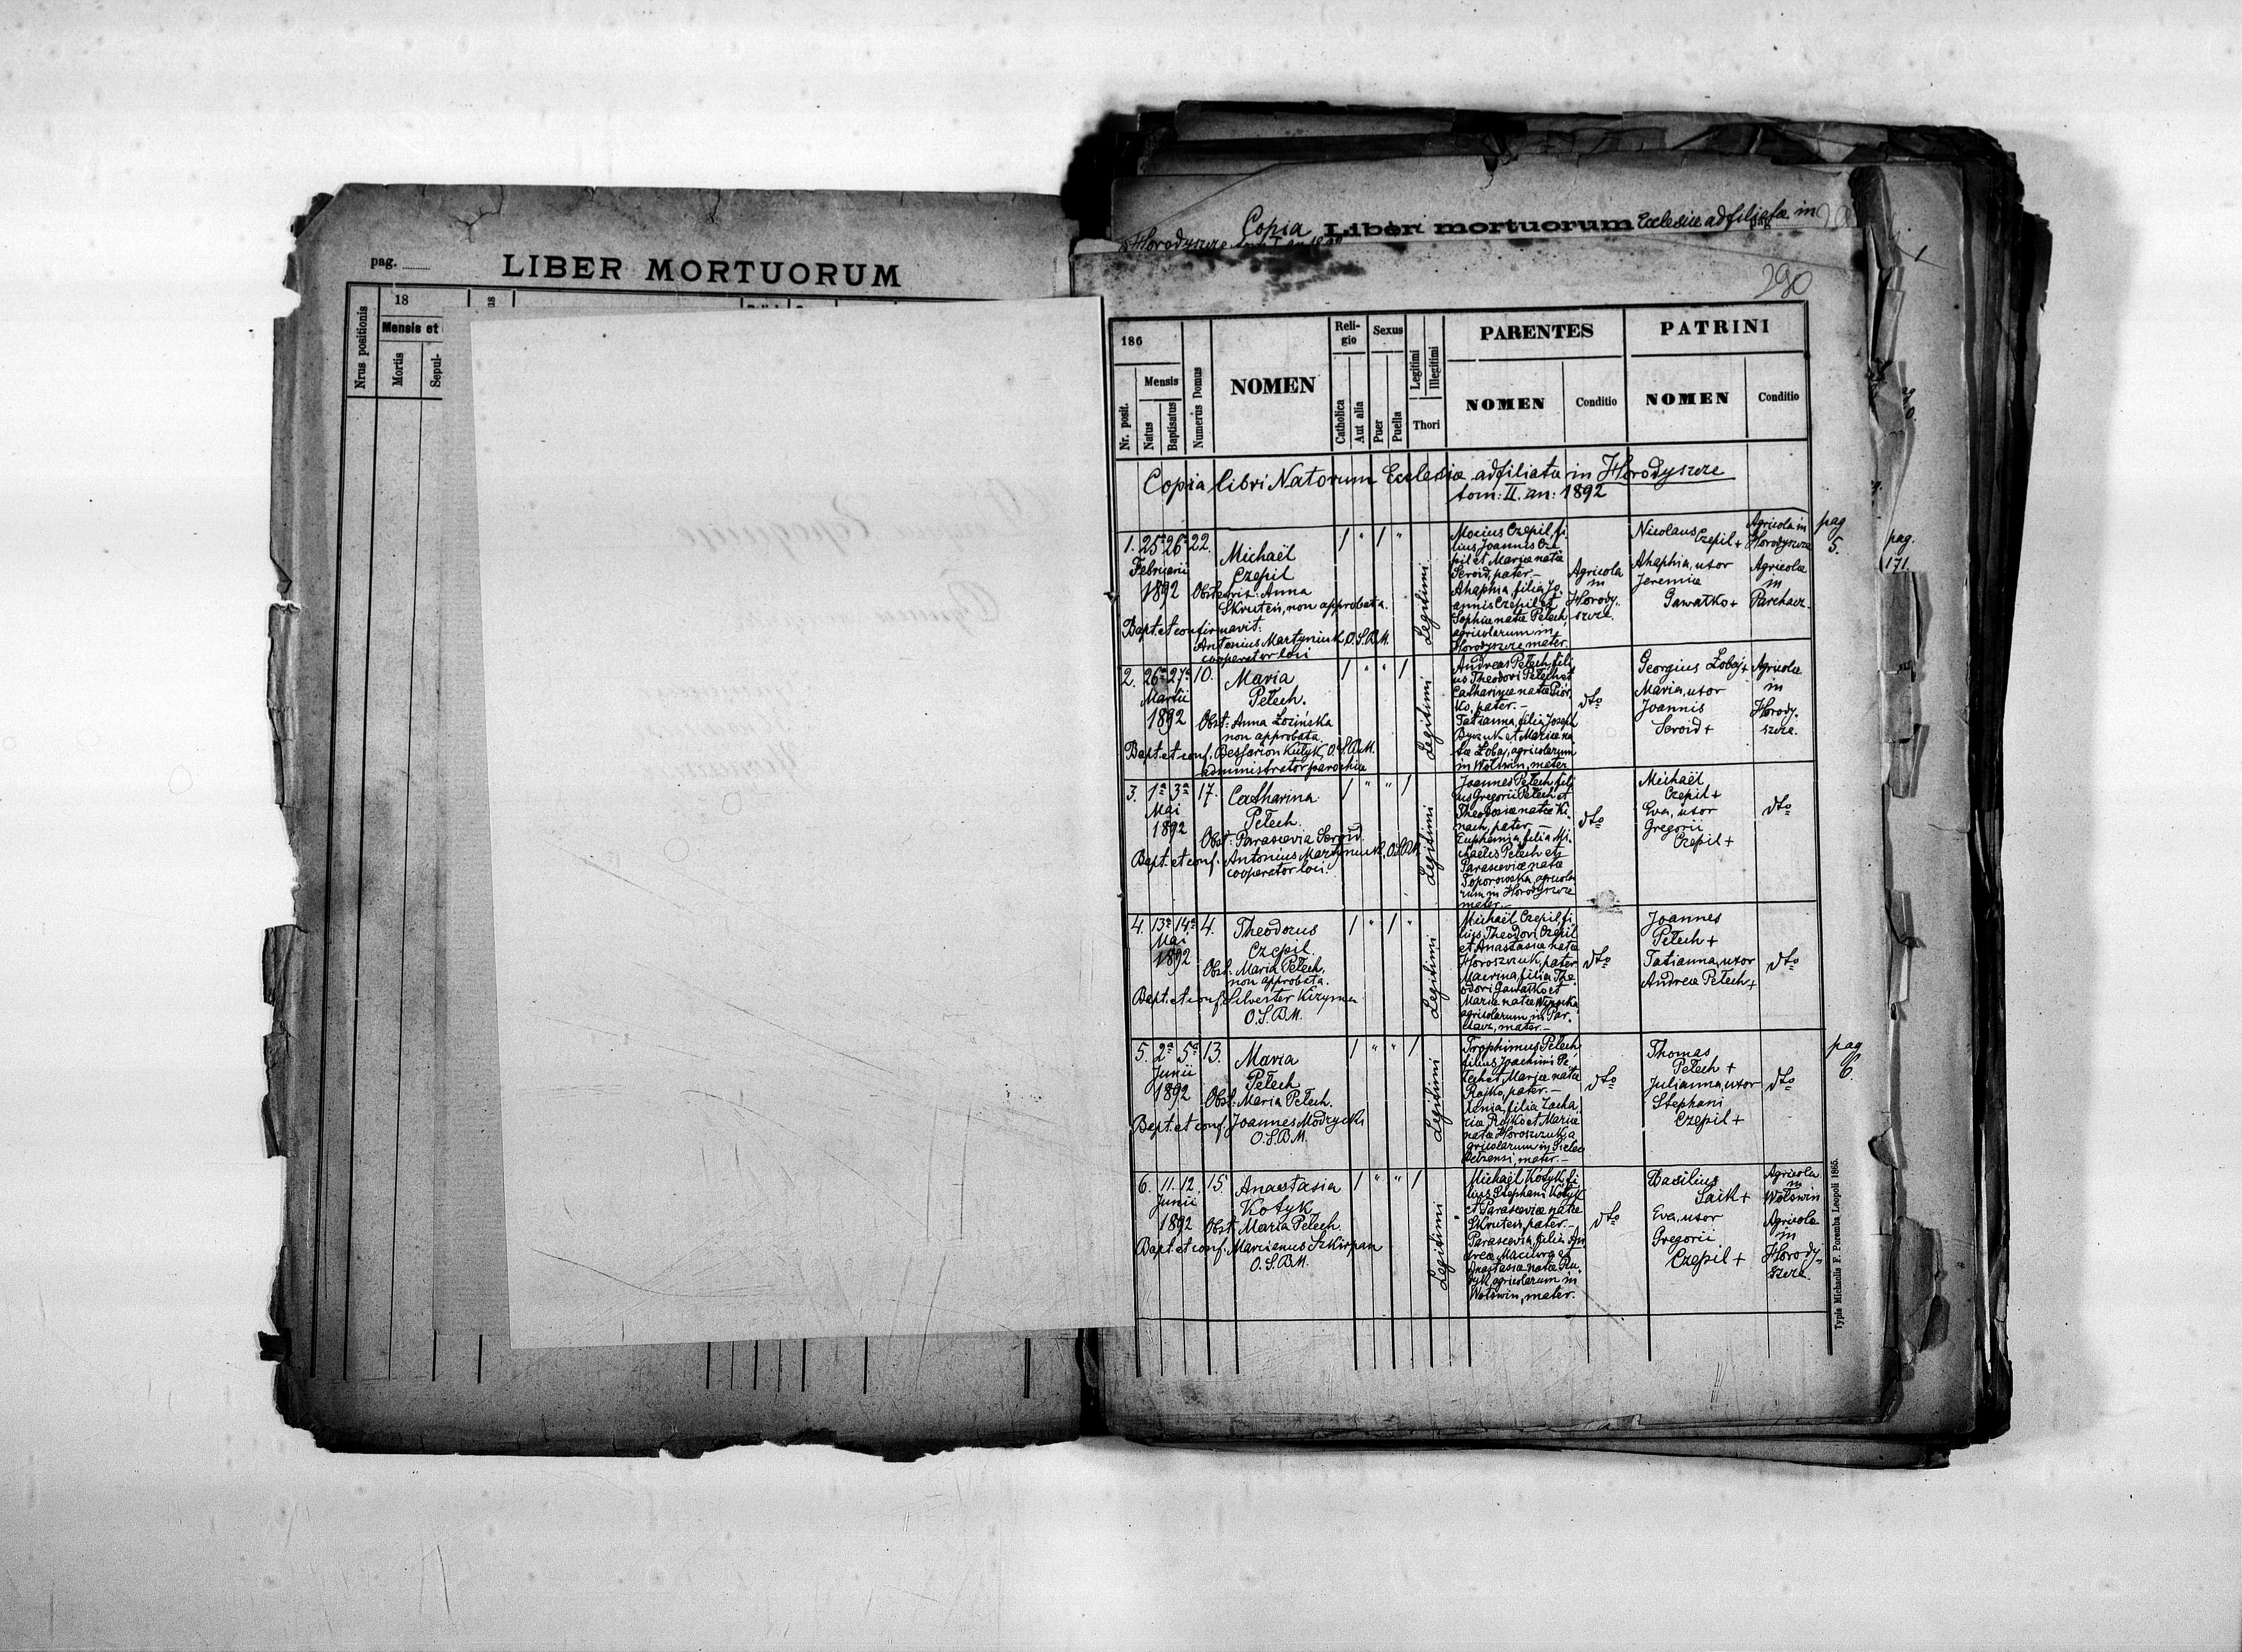 pag.
LIBER MORTUORUM
Nrus positionis
18
Mensis et
Mortis
Sepul-
Copia Libri mortuorum Ecclesiae adfiliatae in
pag
Horodyszcze
290
186
Nr. posit.
Mensis
Natus
Baptisatus
Numerus Domus
NOMEN
Reli-
gio
Catholica
Aut alia
Sexus
Puer
Puella
Legitimi
Illegitimi
Thori
PARENTES
NOMEN
Conditio
PATRINI
NOMEN
Conditio
Copia libri Natorum Ecclesiae adfiliatae in Horodyszcze
tom: II. an: 1892
1. 25ª 26ª 22.
Februarii
1892
Michaël
Czepil
Obstetrix: Anna
Skruteń, non approbata.
Bapt. et confirmavit:
Antonius Martyniuk, O.S.B.M.
cooperator loci
/ " / "
Legitimi
Mocius Czepil, fi
lius Joannis Cze
pil et Mariae natae
Seroid, pater. –
Ahaphia, filia Jo
annis Czepil et
Sophiae natae Pełech,
agricolarum in
Horodyszcze mater.
Agricola
in
Horody-
szcze.
Nicolaus
Czepil +
Agricola in
Horodyszcze
Ahaphia, uxor
Jeremiae
Gawatko +
Agricola
in
Parchacz.
pag
5.
pag.
171.
2. 26ª 27ª 10.
Martii
1892
Maria
Pełech.
Obst: Anna Łozińska
non approbata.
Bapt. et conf. Bessarion Kułyk, O.S.B.M.
administrator parochiae
/ " " /
Legitimi
Andreas Pełech, fili
us Theodori Pełech et
Catharinae natae Piór
ko, pater. –
Tatianna, filia Joseph
Byczuk et Mariae na
tae Łobaj, agricolarum
in Wolswin, mater
dto
Georgius Łobaj +
Maria, uxor
Joannis
Seroid +
Agricolae
in
Horody-
szcze.
3. 1ª 3ª 17.
Mai
1892
Catharina
Pełech.
Obst: Parascevia Seroid
Bapt. et conf. Antonius Martyniuk, O.S.B.M.
cooperator loci.
/ " " /
Legitimi
Joannes Pełech, fili
us Gregorii Pełech et
Theodosiae natae Ki
nach, pater –
Euphemia, filia Mi-
chaelis Pełech et
Parasceviae natae
Toporowska, agricola
rum in Horodyszcze
mater. –
dto
Michaël
Czepil +
Eva, uxor
Gregorii
Czepil +
dto
4. 13ª 14ª 4.
Mai
1892
Theodorus
Czepil
Obst: Maria Pełech,
non approbata.
Bapt. et conf. Silvester Kizyma
O.S.B.M.
/ " / "
Legitimi
Michaël Czepil, fi
lius Theodori Czepil
et Anastasiae natae
Horoszczuk, pater
Macrina, filia The
odori Gawatko et
Mariae natae Wysocka
agricolarum in Par-
chacz, mater. –
dto
Joannes
Pełech +
Tatianna, uxor
Andreae Pełech +
dto
5. 2ª 5ª 13.
Junii
1892
Maria
Pełech
Obst: Maria Pełech.
Bapt. et conf. Joannes Modrycki
O.S.B.M.
/ " " /
Legitimi
Trophimus Pełech
filius Joachimi Pe
łech et Mariae natae
Rojko, pater. –
Xenia, filia Zacha
riae Rojko et Mariae
natae Horoszczuk, a
gricolarum in Sielec
Bełzensi, mater. –
dto
Thomas
Pełech +
Julianna, uxor
Stephani
Czepil +
dto
pag
6.
6. 11. 12. 15.
Junii
1892
Anastasia
Kotyk
Obst: Maria Pełech
Bapt. et conf. Marcianus Szkirpan
O.S.B.M.
/ " " /
Legitimi
Michaël Kotyk, fi
lius Stephani Kotyk
et Parasceviae natae
Skruteń, pater. –
Parascevia, filia An
dreae Maciura et
Anastasiae natae Ru
dyk, agricolarum in
Wolswin, mater.
dto
Basilius
Saik +
Agricola
in
Wolswin
Eva, uxor
Gregorii
Czepil +
Agricola
in
Horody-
szcze.
Typis Michaelis F. Poremba Leopoli 1865.